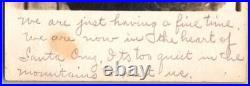 We are just having a fine time.
We are now in the heart of
Santa Cruz, Its too quiet in the
mountains us.